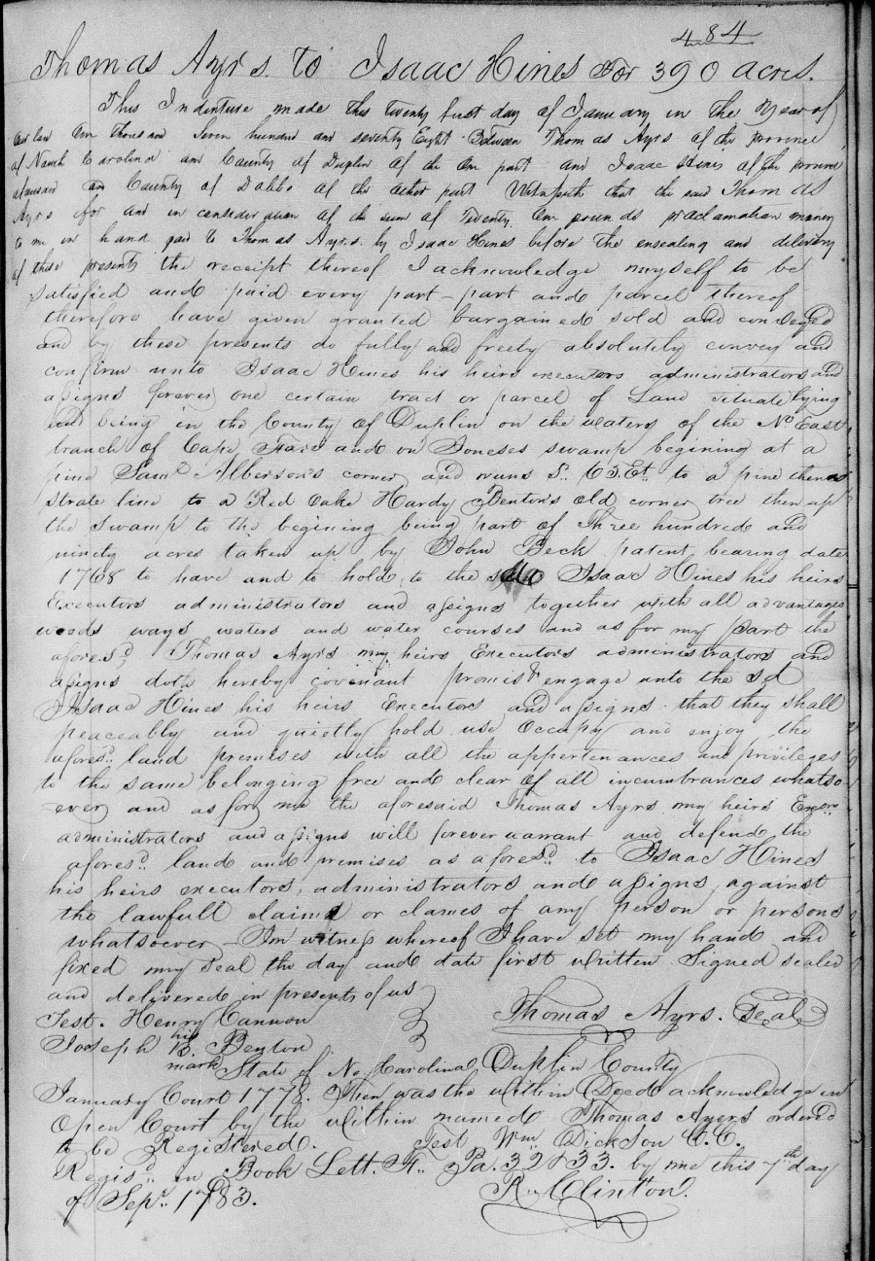 484
Thomas Ayrs. to Isaac Hines For 390 acres.
This Indenture made this twenty first day of January in the Year of
our Lord One thousand Seven hundred and seventy Eight Between Thomas Ayrs of the province
of North Carolina and County of Duplin of the One part and Isaac Hines of the province
aforesaid and County of Dobbs of the other part Witnesseth that the said Thomas
Ayrs for and in consideration of the sum of Twenty One pounds proclamation money
to me in hand paid to Thomas Ayrs. by Isaac Hines before the ensealing and delivery
of these presents the receipt thereof I acknowledge myself to be
satisfied and paid every part - part and parcel thereof
therefore have given granted bargained sold and conveyed
and by these presents do fully and freely absolutely convey and
confirm unto Isaac Hines his heirs executors administrators and
assigns forever one certain tract or parcel of Land situate lying
and being in the County of Duplin on the waters of the No. East
branch of Cape Fare and on Joneses swamp begining at a
pine Saml. Alberson's corner and runs S. 63 Et. to a pine thence a
strate line to a Red Oake Hardy Benton's old corner tree then up
the Swamp to the begining being part of Three hundred and
ninety acres taken up by John Beck patent bearing date
1768 to have and to hold to the sd Isaac Hines his heirs
Executors administrators and assigns together with all advantages
woods ways waters and water courses and as for my part the
aforesd. Thomas Ayrs my heirs Executors administrators and
assigns doth hereby covinant promis & engage unto the sd
Isaac Hines his heirs Executors and assigns that they shall
peaceably and quietly hold use Occupy and enjoy the
aforesd. land premises with all the appertenances and privileges
to the same belonging free and clear of all incumbrances whatso
ever and as for me the aforesaid Thomas Ayrs my heirs Exers.
administrators and assigns will forever warrant and defend the
aforesd. land and premises as aforesd. to Isaac Hines
his heirs executors, administrators and assigns against
the lawfull claims or clames of any person or persons
whatsoever - In witness whereof I have set my hand and
fixed my seal the day and date first written Signed sealed
and delivered in presents of us
Test. Henry Cannon Thomas Ayrs. Seal
Joseph his B. mark Benton
State of No Carolina Duplin County
January Court 1778. Then was the within Deed acknowledge in
Open Court by the Within named Thomas Ayers ordered
to be Registered. Test Wm. Dickson C.C.
Regisd. in Book Lett. F. Pa. 32 & 33. by me this 7th day
of Sepr. 1783. R. Clinton.